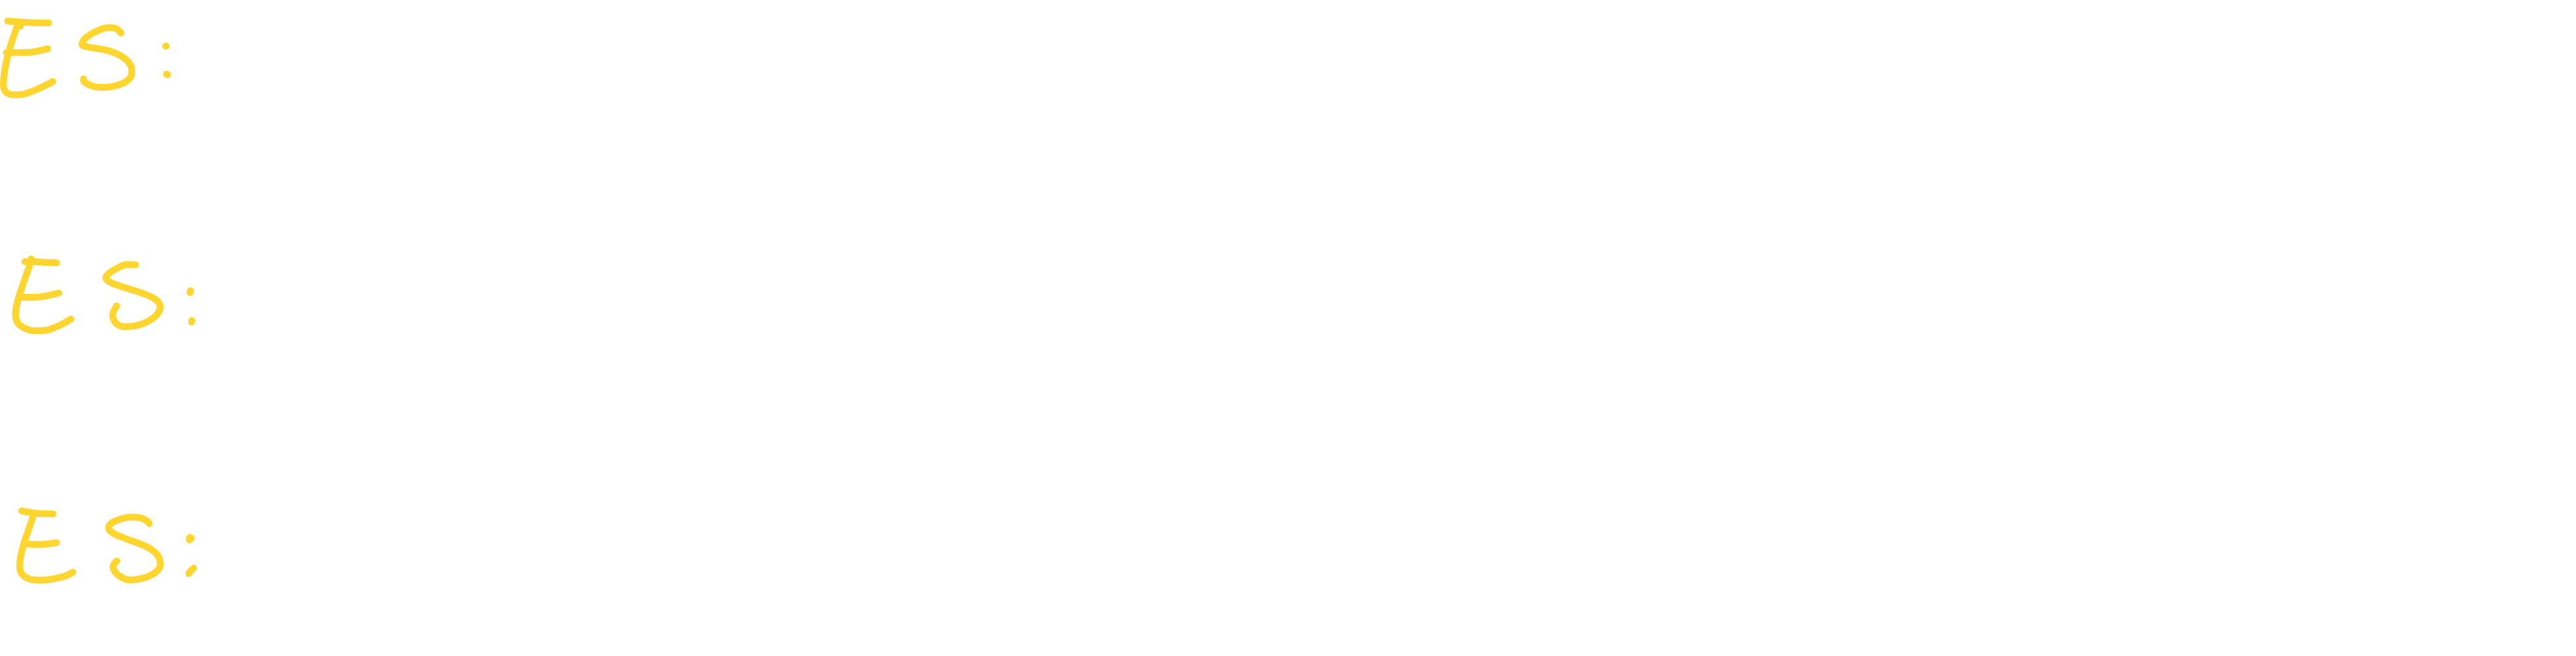 ES:
ES:
ES: